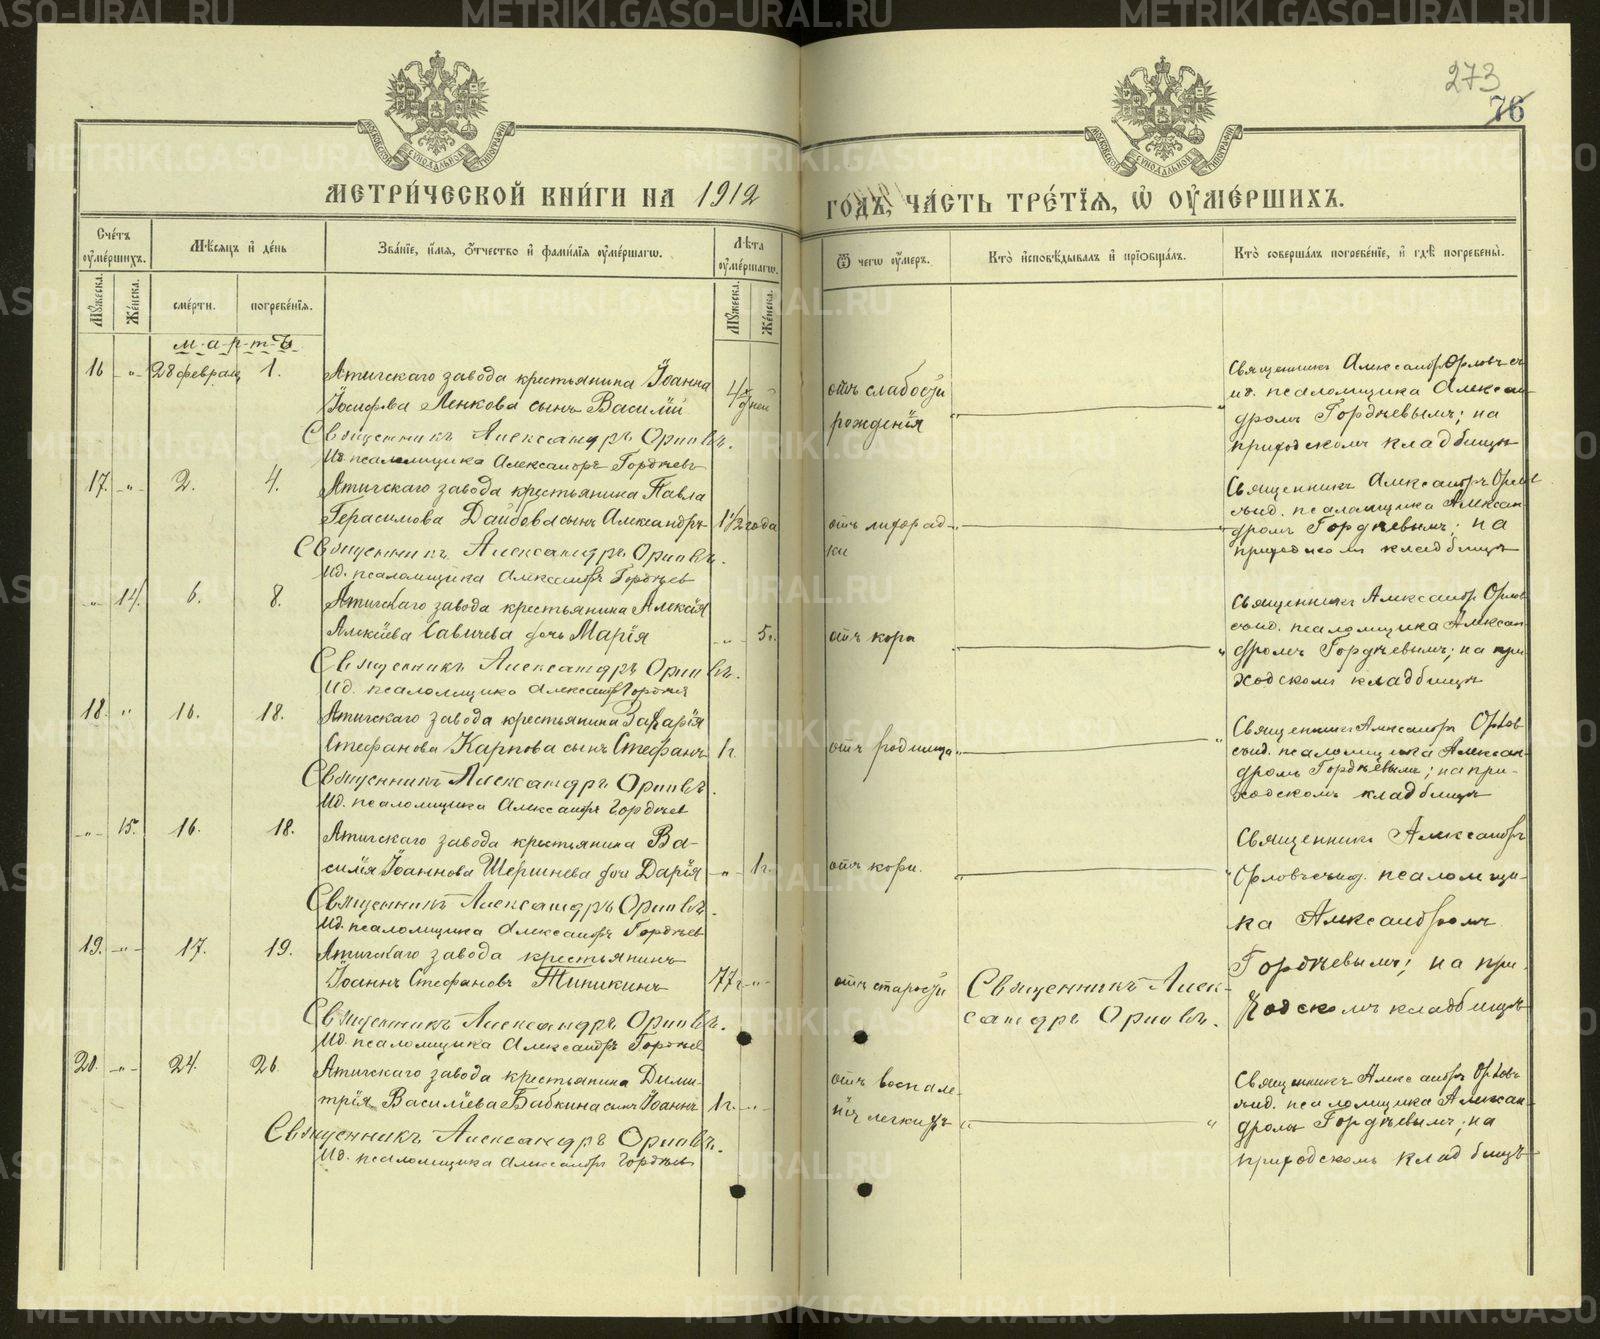 273
76
МЕТРИ́ЧЕСКОЙ КНИ́ГИ НА 1912
ГОДЪ, ЧА́СТЬ ТРЕ́ТЇѦ, Ѡ ОУ҆МЕ́РШИХЪ.
Сче́тъ оу҆ме́ршихъ.
Мꙋ́жеска.
Же́нска.
Мѣ́сѧцъ и҆ де́нь
сме́рти.
погребе́нїѧ.
Зва́нїе, и҆́мѧ, ѻ҆́тчество и҆ фами́лїѧ оу҆ме́ршагѡ.
Лѣ́та оу҆ме́ршагѡ.
Мꙋ́жеска.
Же́нска.
Ѿ чегѡ̀ оу҆́меръ.
Кто̀ и҆сповѣ́дывалъ и҆ прїѡбща́лъ.
Кто̀ соверша́лъ погребе́нїе, и҆ гдѣ̀ погребены̀.
м-а-р-т-ъ
16 -„- 28 феврал 1.
Атигскаго завода крестьянина Іоанна
Іосифова Ленкова сынъ Василій
4 дней
отъ слабости
рожденія
Священникъ Александръ Орловъ.
И.д. псаломщика Александръ Гордѣевъ
Священникъ Александръ Орловъ съ
и.д. псаломщика Алексан-
дромъ Гордѣевымъ; на
приходскомъ кладбищѣ
17. -„- 2. 4.
Атигскаго завода крестьянина Павла
Герасимова Дайбова сынъ Александръ
1 1/2 года
отъ лихорад-
ки
Священникъ Александръ Орловъ.
И.д. псаломщика Александръ Гордѣев
Священникъ Александръ Орлов
съ и.д. псаломщика Алексан
дромъ Гордѣевымъ; на
приходском кладбищѣ
„ 14. 6. 8.
Атигскаго завода крестьянина Алексія
Алексіева Савичева дочь Марія
-„- 5г.
отъ кори
Священникъ Александръ Орловъ.
И.д. псаломщика Александръ Гордѣев
Священникъ Александр Орлов
съ и.д. псаломщика Алексан
дромъ Гордѣевымъ; на при
ходскомъ кладбищѣ
18. „ 16. 18.
Атигскаго завода крестьянина Захарія
Стефанова Карпова сынъ Стефанъ
1г.
отъ родимца
Священникъ Александръ Орловъ.
И.д. псаломщика Александръ Гордѣев
Священникъ Александръ Орлов
съ и.д. псаломщика Алексан-
дромъ Гордѣевымъ; на при-
ходскомъ кладбищѣ
-„- 15. 16. 18.
Атигскаго завода крестьянина Ва-
силія Іоаннова Шершнева дочь Дарія
-„- 1г.
отъ кори.
Священникъ Александръ Орловъ.
И.д. псаломщика Александръ Гордѣев
Священникъ Александръ
Орловъ съ и.д. псаломщи-
ка Александромъ
Гордѣевымъ; на при-
ходскомъ кладбищѣ
19. -„- 17. 19.
Атигскаго завода крестьянинъ
Іоаннъ Стефановъ Типикинъ
77г. -„-
отъ старости
Священникъ Алек-
сандръ Орловъ.
Священникъ Александръ Орловъ.
И.д. псаломщика Александръ Гордѣев
20. -„- 24. 26.
Атигскаго завода крестьянина Дими-
трія Василіева Бабкина сынъ Іоаннъ
1г. -„-
отъ воспале-
нія легкихъ
Священникъ Александръ Орловъ.
И.д. псаломщика Александръ Гордѣев
Священникъ Александръ Орловъ
съ и.д. псаломщика Алексан-
дромъ Гордѣевымъ; на
приходскомъ кладбищѣ